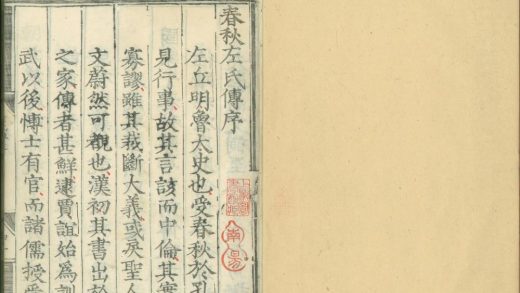 春秋左氏傳序
左丘明魯太史也受春秋於孔
見行事故其言該而中倫其實
寡謬雖其裁斷大義或戾聖人
文蔚然可觀也漢初其書出於
之家傳者甚鮮逮賈誼始爲訓
武以後博士有官而諸儒授受